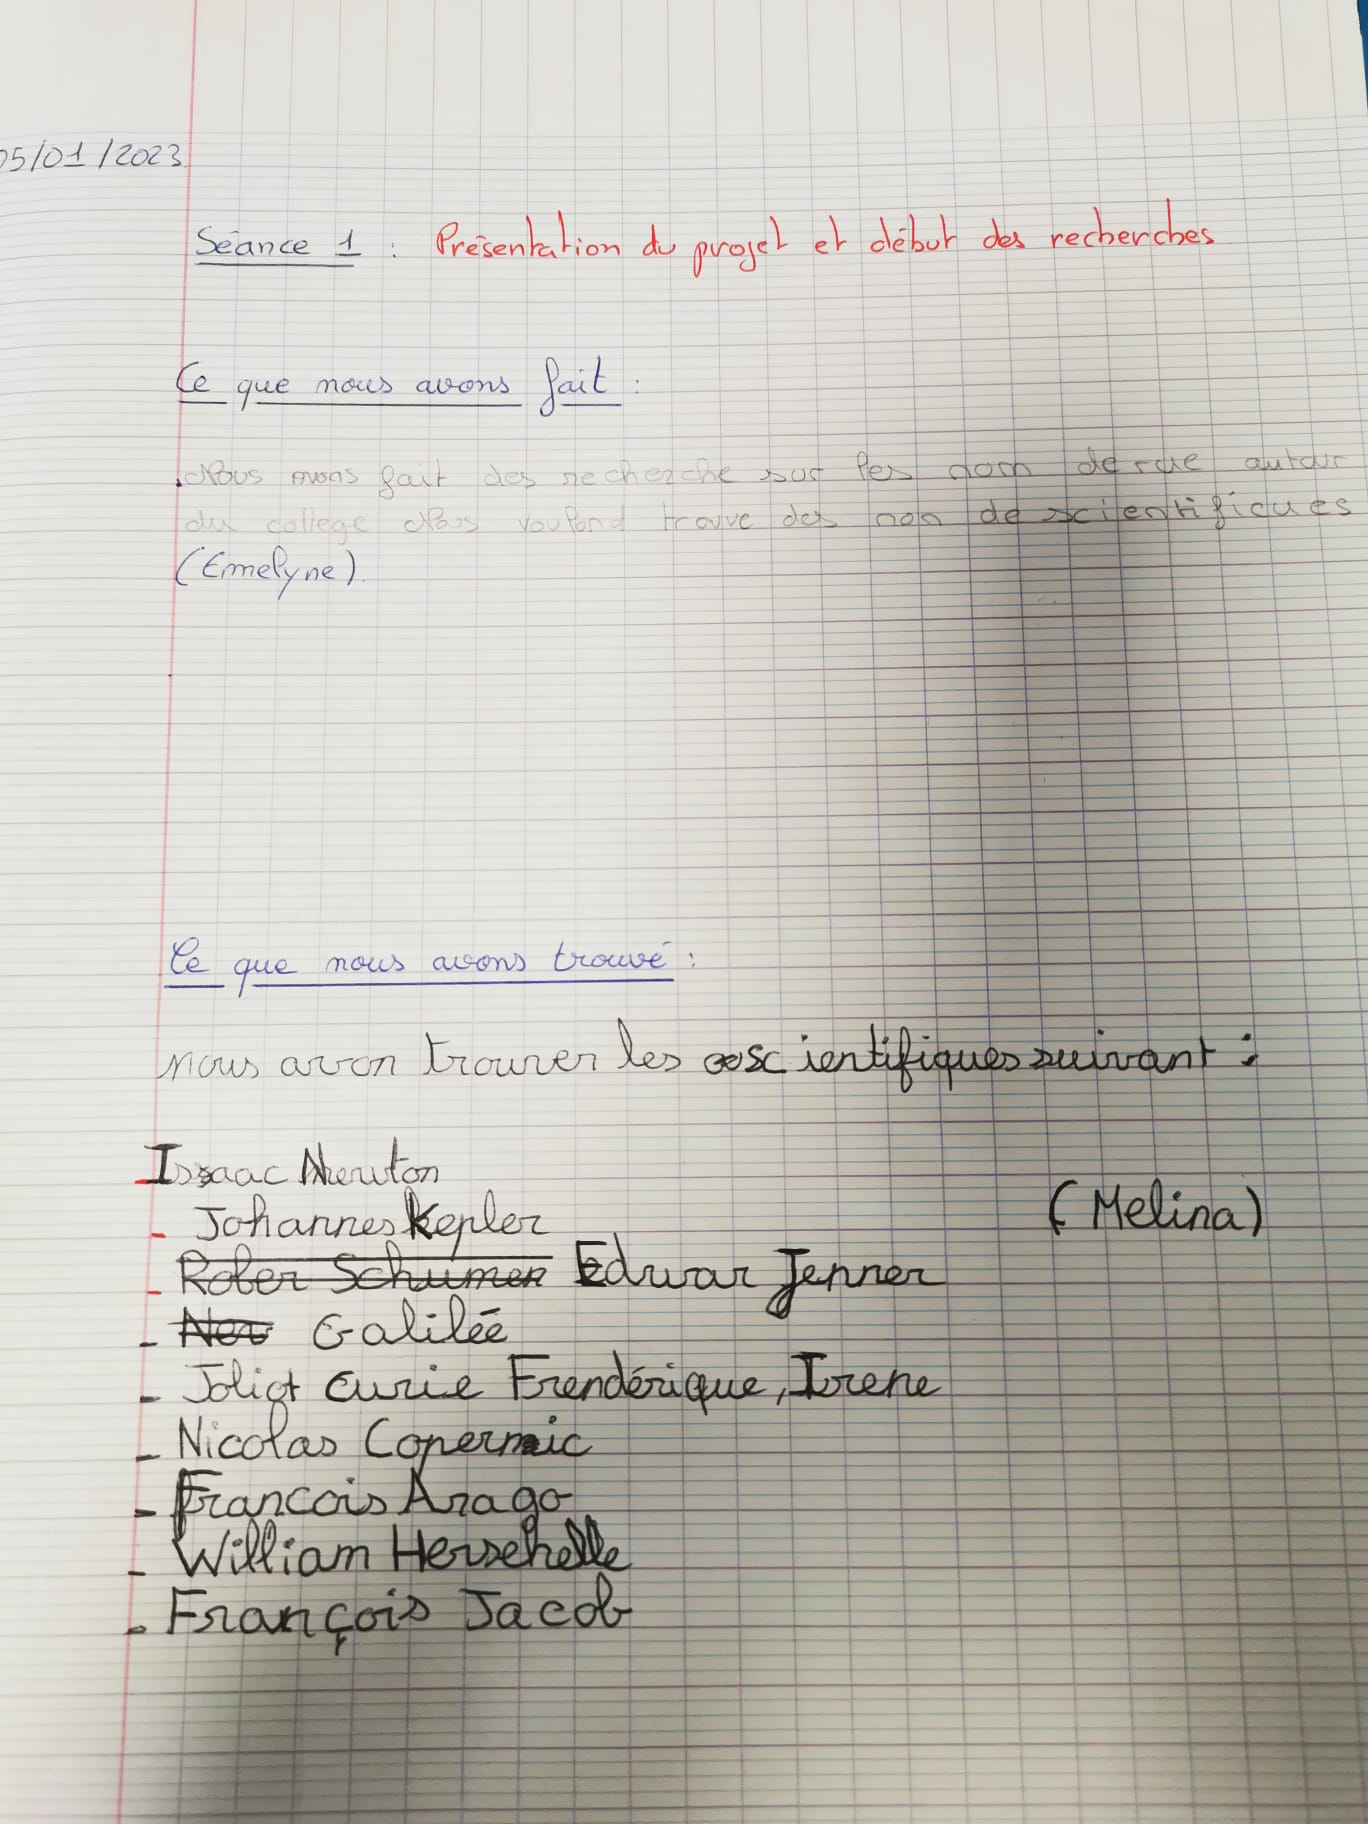 05/01/2023
Séance 1 : Présentation du projet et début des recherches
Ce que nous avons fait :
Nous avons fait des recherche sur les nom de rue autour
du college Nous voulond trouve des non de scientifiques
(Emelyne).
Ce que nous avons trouvé :
nous avon trouver les scientifiques suivant :
- Issaac Newton
(Melina)
- Johannes Kepler
- Rober Schumen Edwar Jenner
- New Galilée
- Joliot Curie Frendérique, Irene
- Nicolas Copernic
- Francois Arago
- William Herschelle
- François Jacob